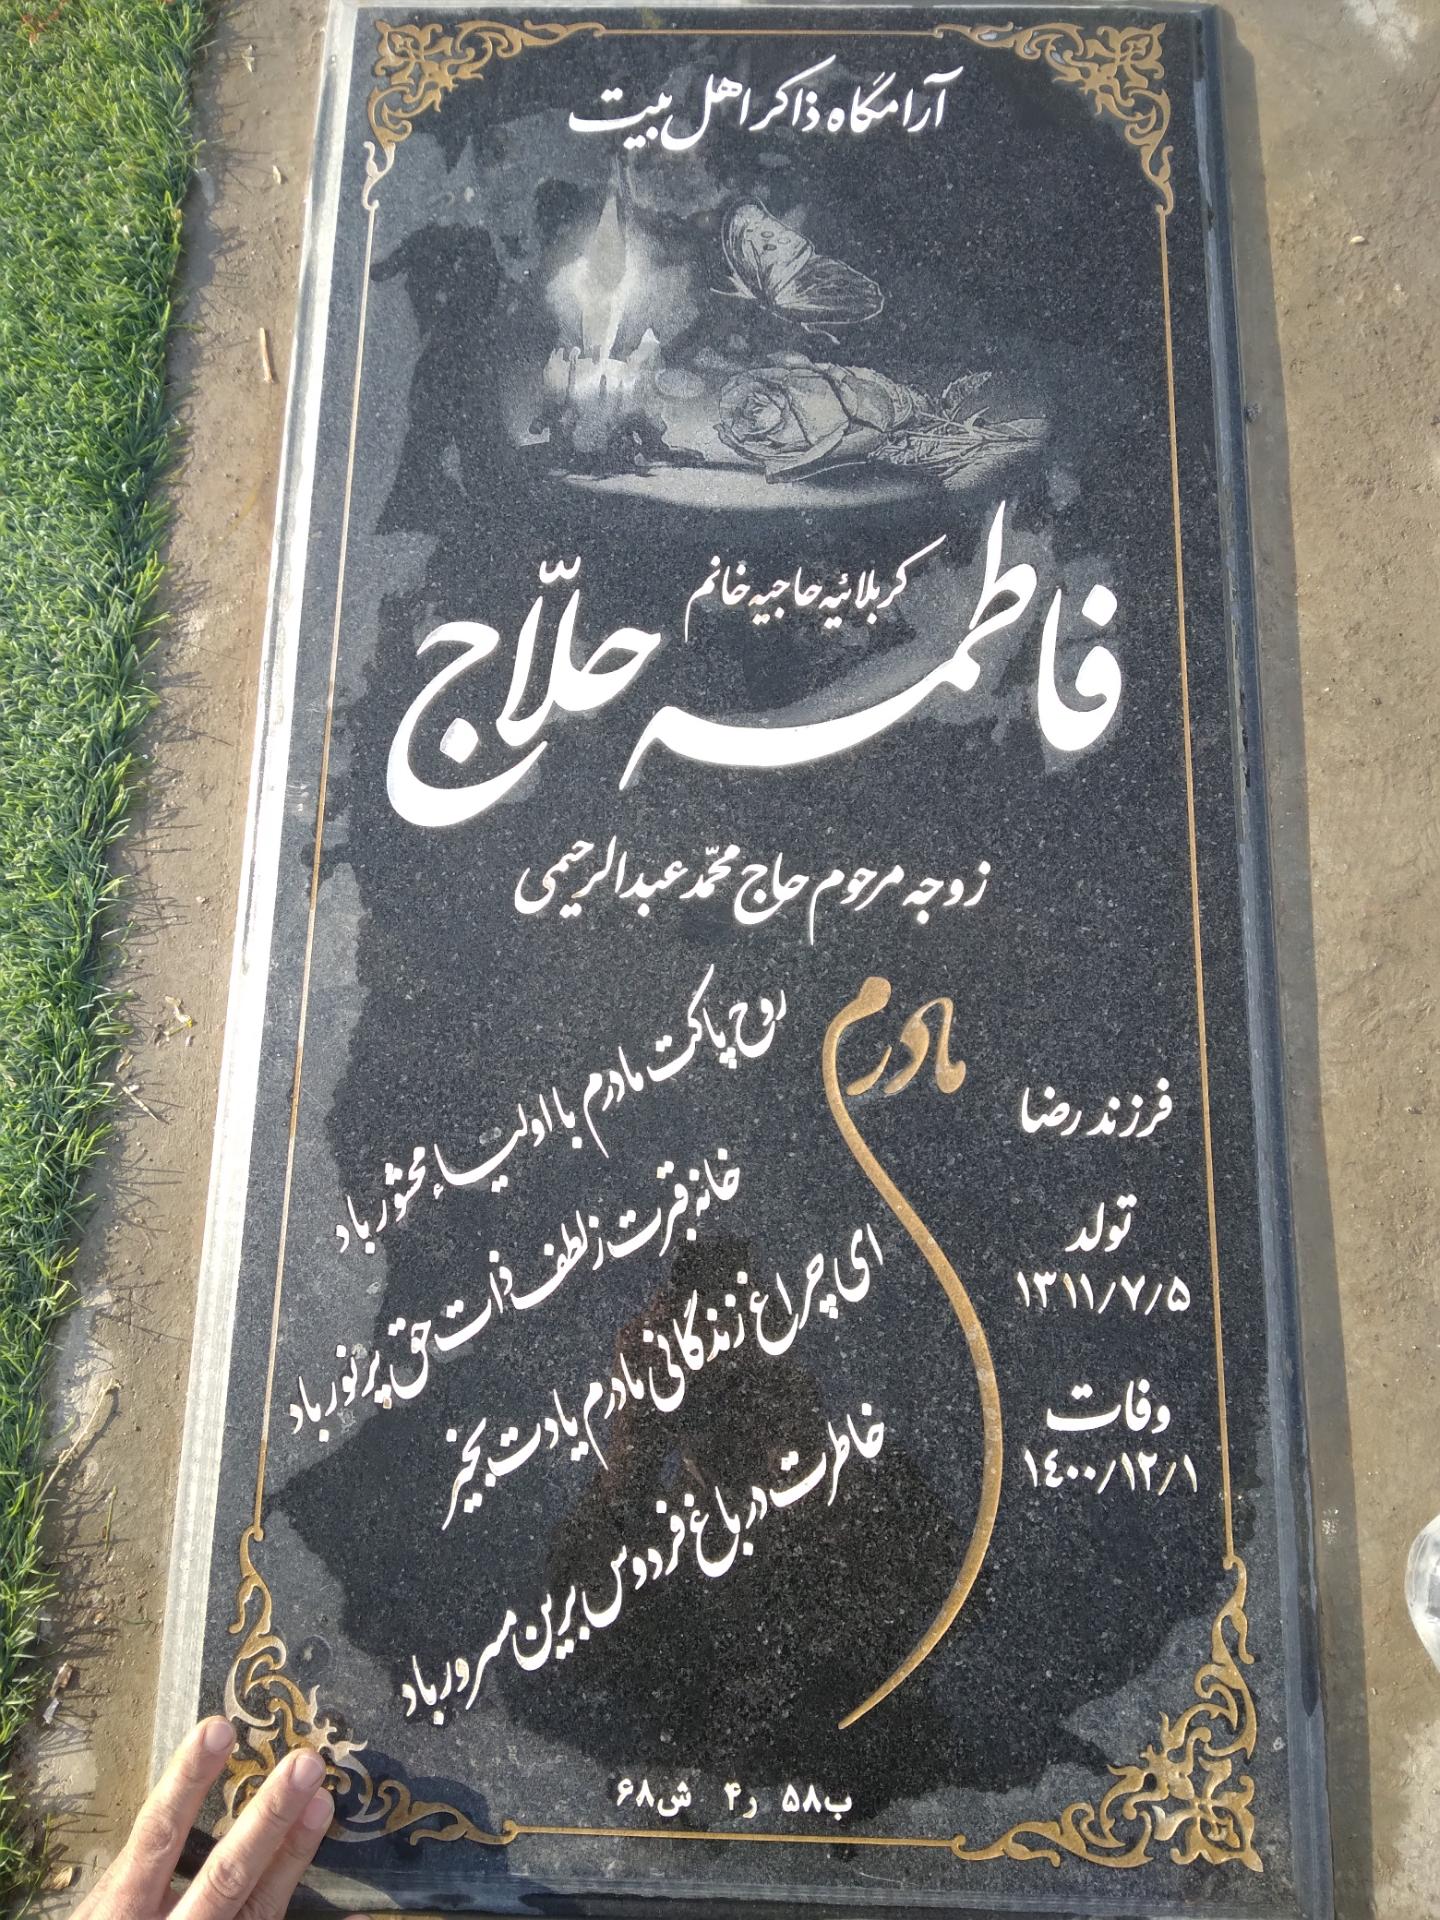 آرامگاه ذاکر اهل بیت
کربلائیه حاجیه خانم
فاطمه حلّاج
زوجه مرحوم حاج محمّد عبدالرحیمی
مادرم
روح پاکت مادرم با اولیاء محشور باد
خانه قبرت ز لطف ذات حق پر نور باد
ای چراغ زندگانی مادرم یادت بخیر
خاطرت در باغ فردوس برین مسرور باد
فرزند رضا
تولد
۱۳۱۱/۷/۵
وفات
۱٤۰۰/۱۲/۱
ب۵۸ ر۴ ش۶۸